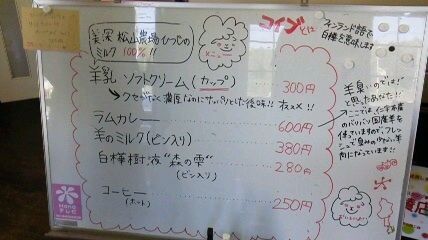 美深 松山農場 ひつじの
ミルク 100%!!
メニュー
コイブ とは
フィンランド語で
白樺を意味します
羊乳 ソフトクリーム (カップ) 300円
クセがなく濃厚なのにサッパリとした後味!! オススメ!!
ラムカレー 600円
羊のミルク(ビン入り) 380円
白樺樹液 "森の雫" 280円
(ビン入り)
コーヒー 250円
(ホット)
羊臭いのでは!?
と思ったあなた!!
ここでは、
のバリバリ国産羊を
使っていますので、フレッ
シュで臭みの少ない羊
肉になっています!!
Hana
テレビ